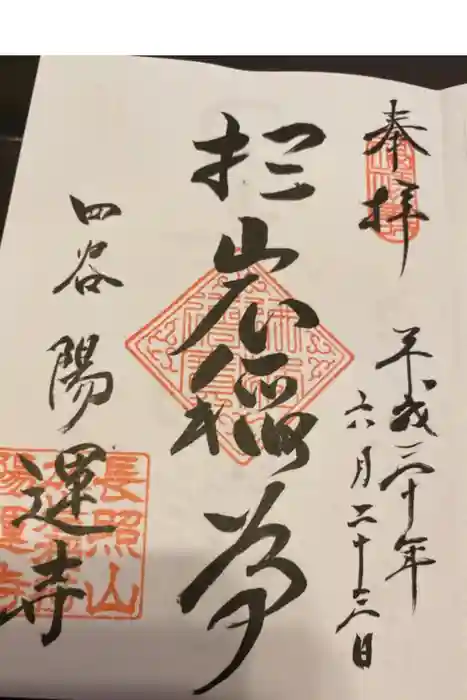 奉拝
平成三十年
六月二十三日
於岩稲荷
四谷
陽運寺
長照山
陽運寺